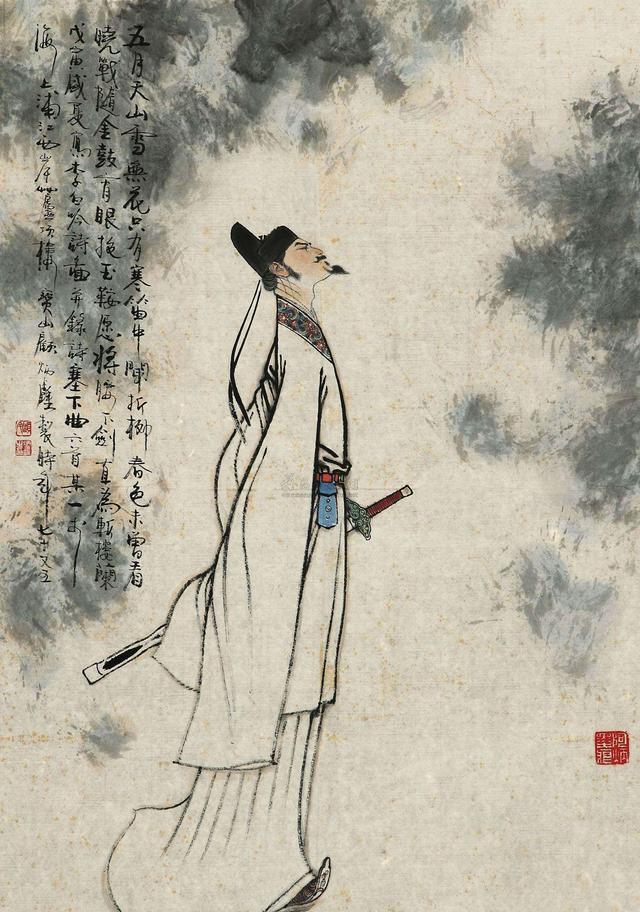 五月天山雪無花只有寒笛中聞折柳春色未曾看
曉戰隨金鼓宵眠抱玉鞍願將腰下劍直為斬樓蘭
戊寅盛夏寫李白吟詩圖并錄詩塞下曲六首其一於
海上浦江西岸 寶山顧炳鑫製時年七十又五